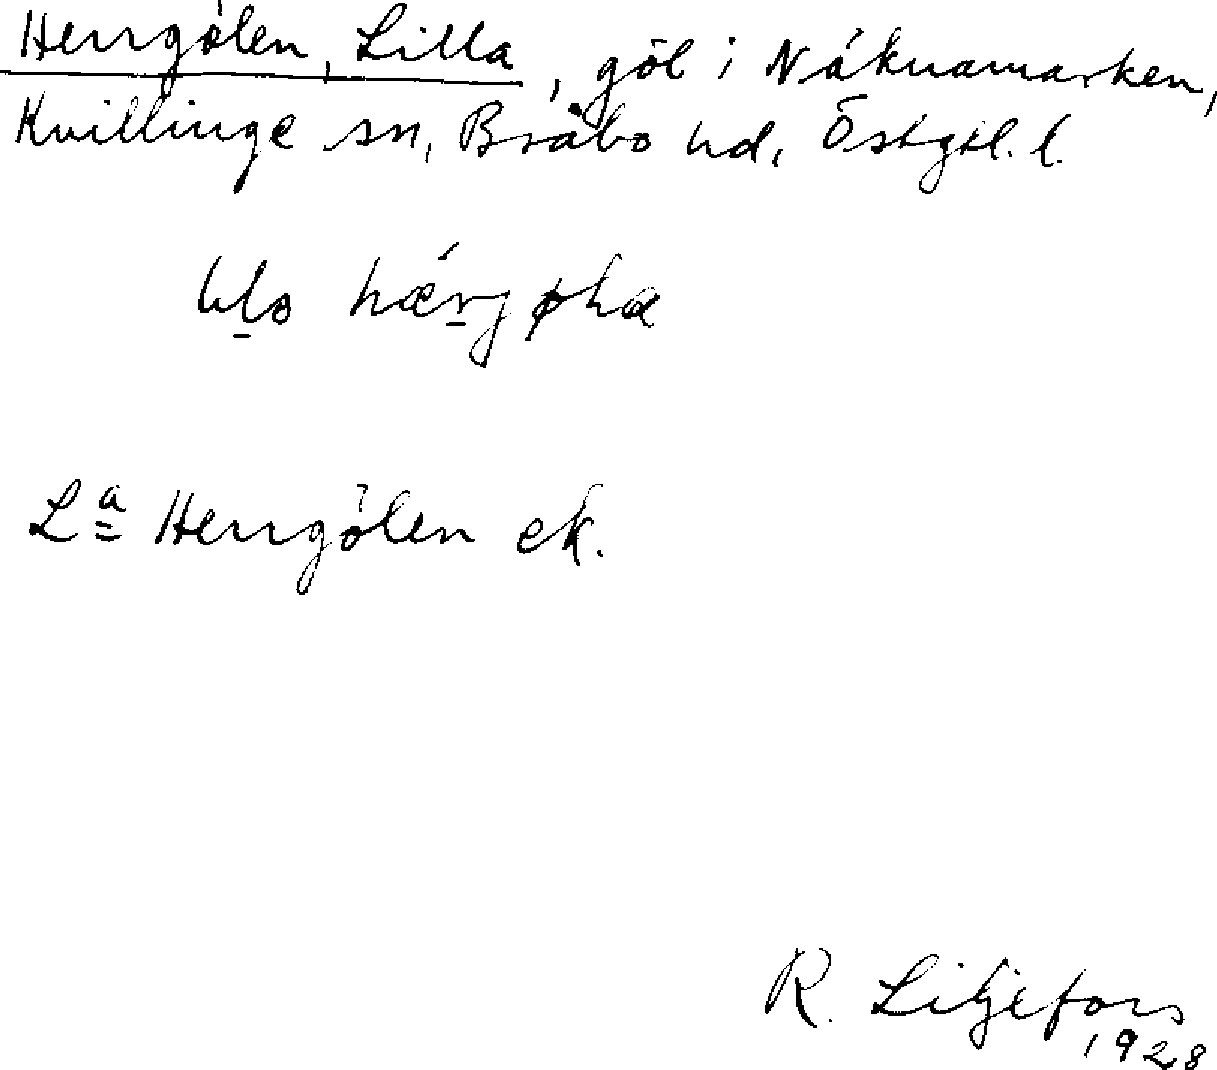 Herrgölen, Lilla, göl i Nåknamarken,
Kvillinge sn, Bråbo hd, Östgtl. l.
La Herrgölen ek.
R. Liljefors
1928